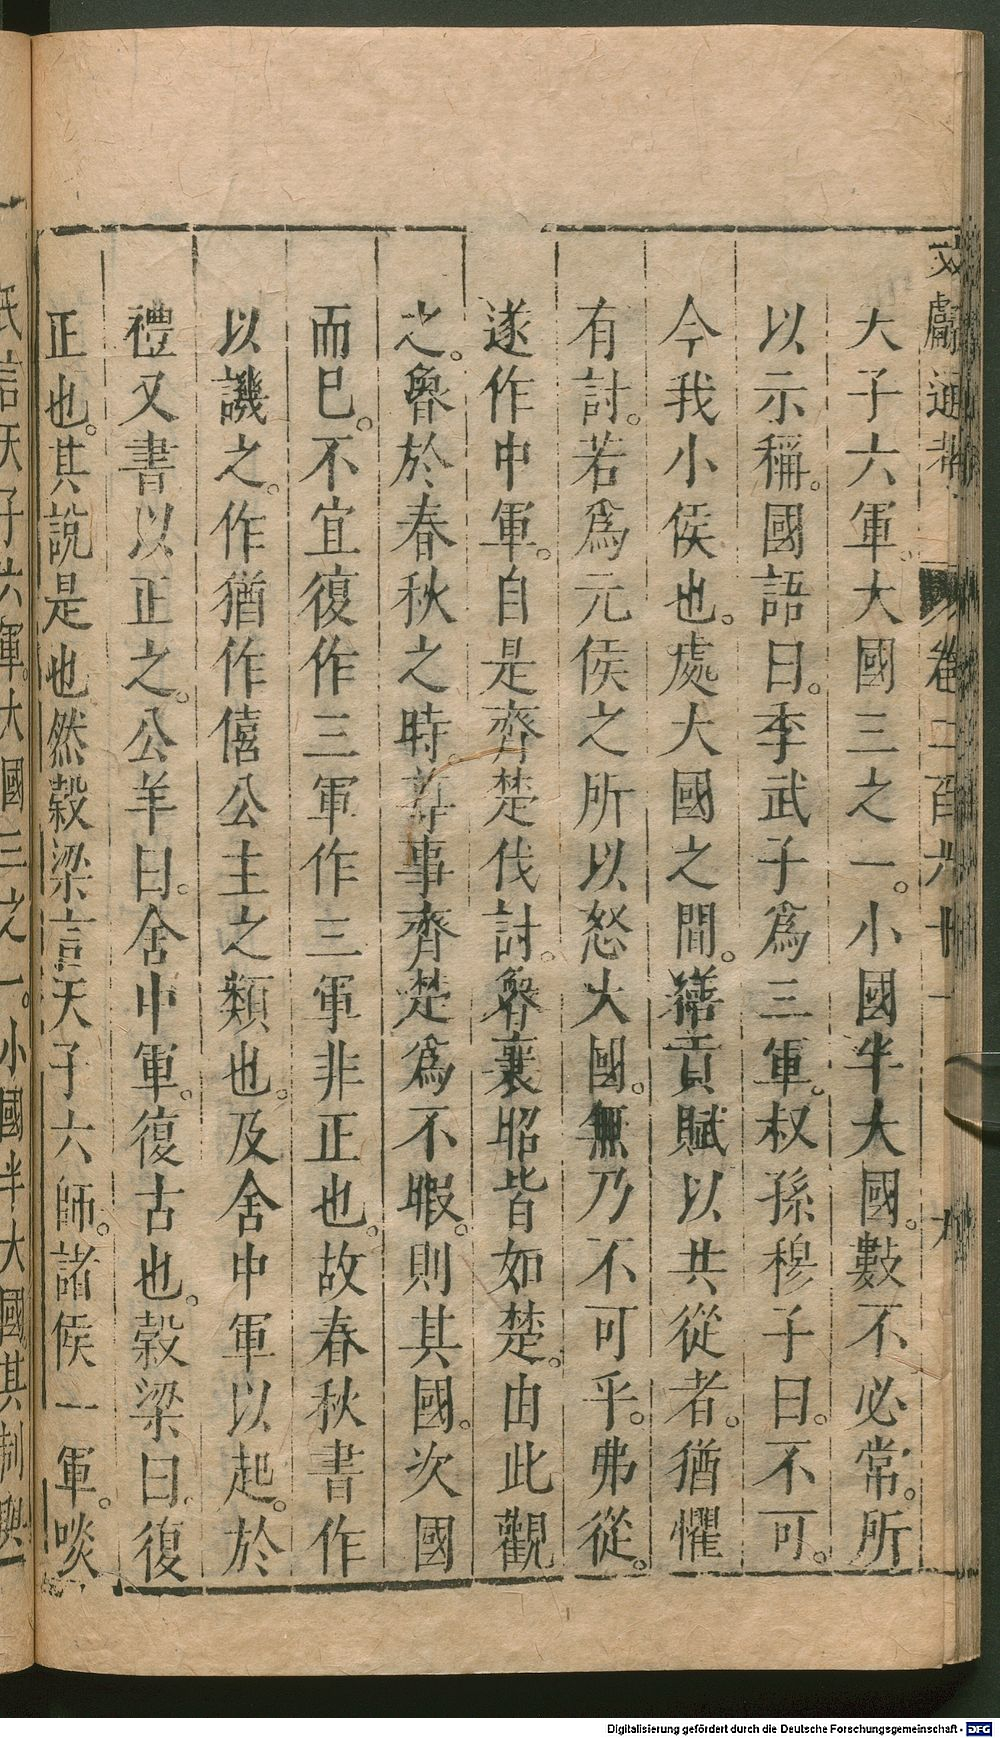 文獻通考 卷二百六十一 九
天子六軍。大國三之一。小國半大國。數不必常。所
以示稱。國語曰。季武子爲三軍。叔孫穆子曰。不可。
今我小侯也。處大國之間。繕貢賦以共從者。猶懼
有討。若爲元侯之所以怒大國。無乃不可乎。弗從。
遂作中軍。自是齊楚伐討。魯襄昭皆如楚。由此觀
之。魯於春秋之時。其事齊楚爲不暇。則其國。次國
而巳。不宜復作三軍作三軍非正也。故春秋書作
以譏之。作猶作僖公主之類也。及舍中軍以起。於
禮又書以正之。公羊曰。舍中軍。復古也。榖梁曰。復
正也。其說是也然榖梁言天子六師。諸侯一軍。啖
氏言天子六軍。大國三之一。小國半大國其制與
Digitalisierung gefördert durch die Deutsche Forschungsgemeinschaft - DFG